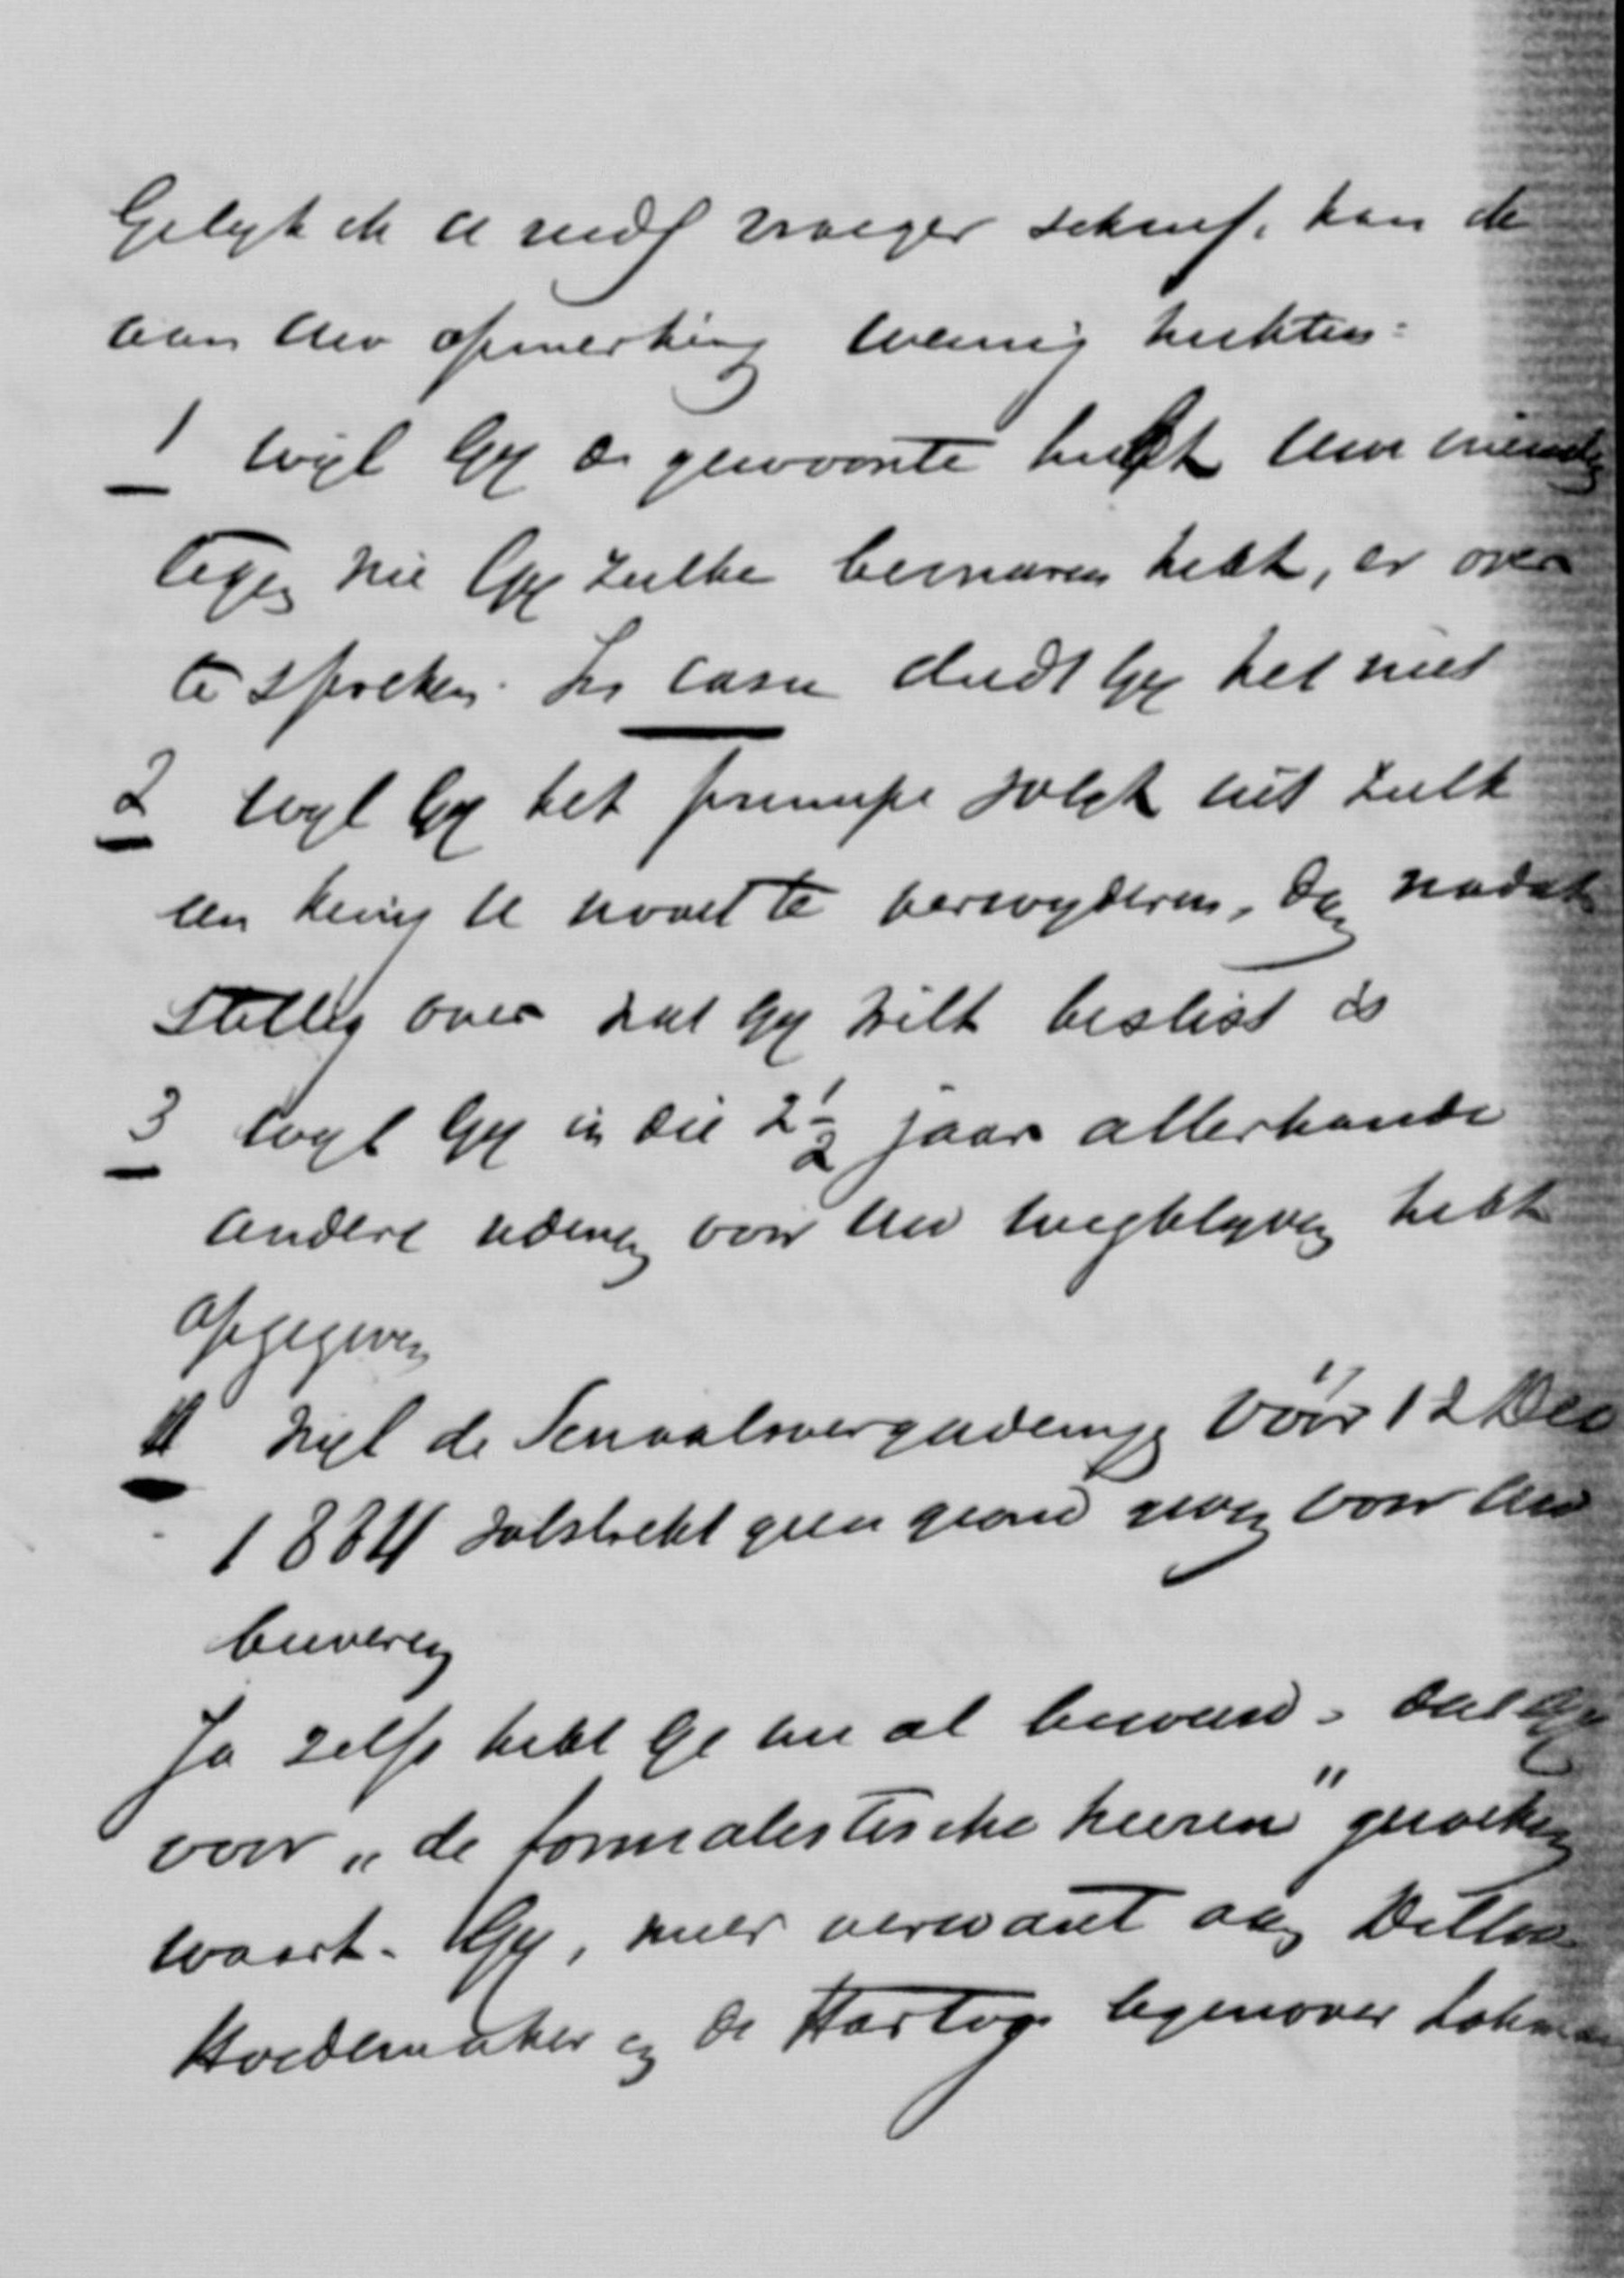 Gelyk ik U reeds vroeger schreef, kan ik
aan Uw opmerking weinig hechten:
1 wyl Gy de gewoonte hebt Uwe vrienden
tegen wie Gy zulke bezwaren hebt, er over
te spreken. In casu deedt Gy het niet
2 wyl Gy het principe volgt uit zulk
een kring U nooit te verwyderen, dan nadat
stellig over wat Gy wilt beslist is
3 wyl Gy in die 2½ jaar allerhande
andere redenen voor Uw wegblyven hebt
opgegeven
4 wyl de Senaatsvergaderingen vóór 12 Dec
1884 volstrekt geen grond geven voor Uw
bewering
Ja zelfs hebt Ge me al beweerd, dat Gy
voor „de formalistische heeren" geweken
waart. Gy, meer verwant aan Dilloo
Hoedemaker en de Hartog tegenover Lohman